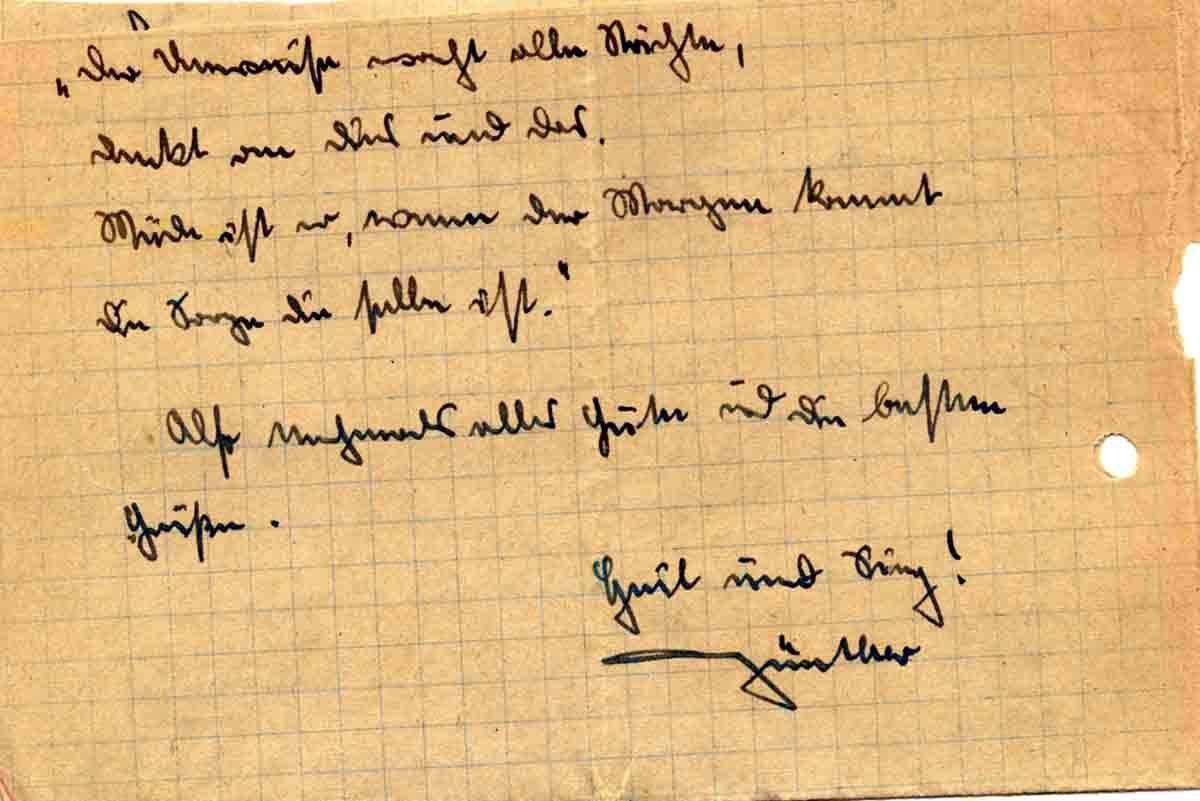 „Der Unweise wacht alle Nächte,
denkt an dies und das.
Müde ist er, wenn der Morgen kommt
die Sorge die selbe ist."
Also nochmals alles Gute und die besten
Grüße.
Heil und Sieg!
Günther